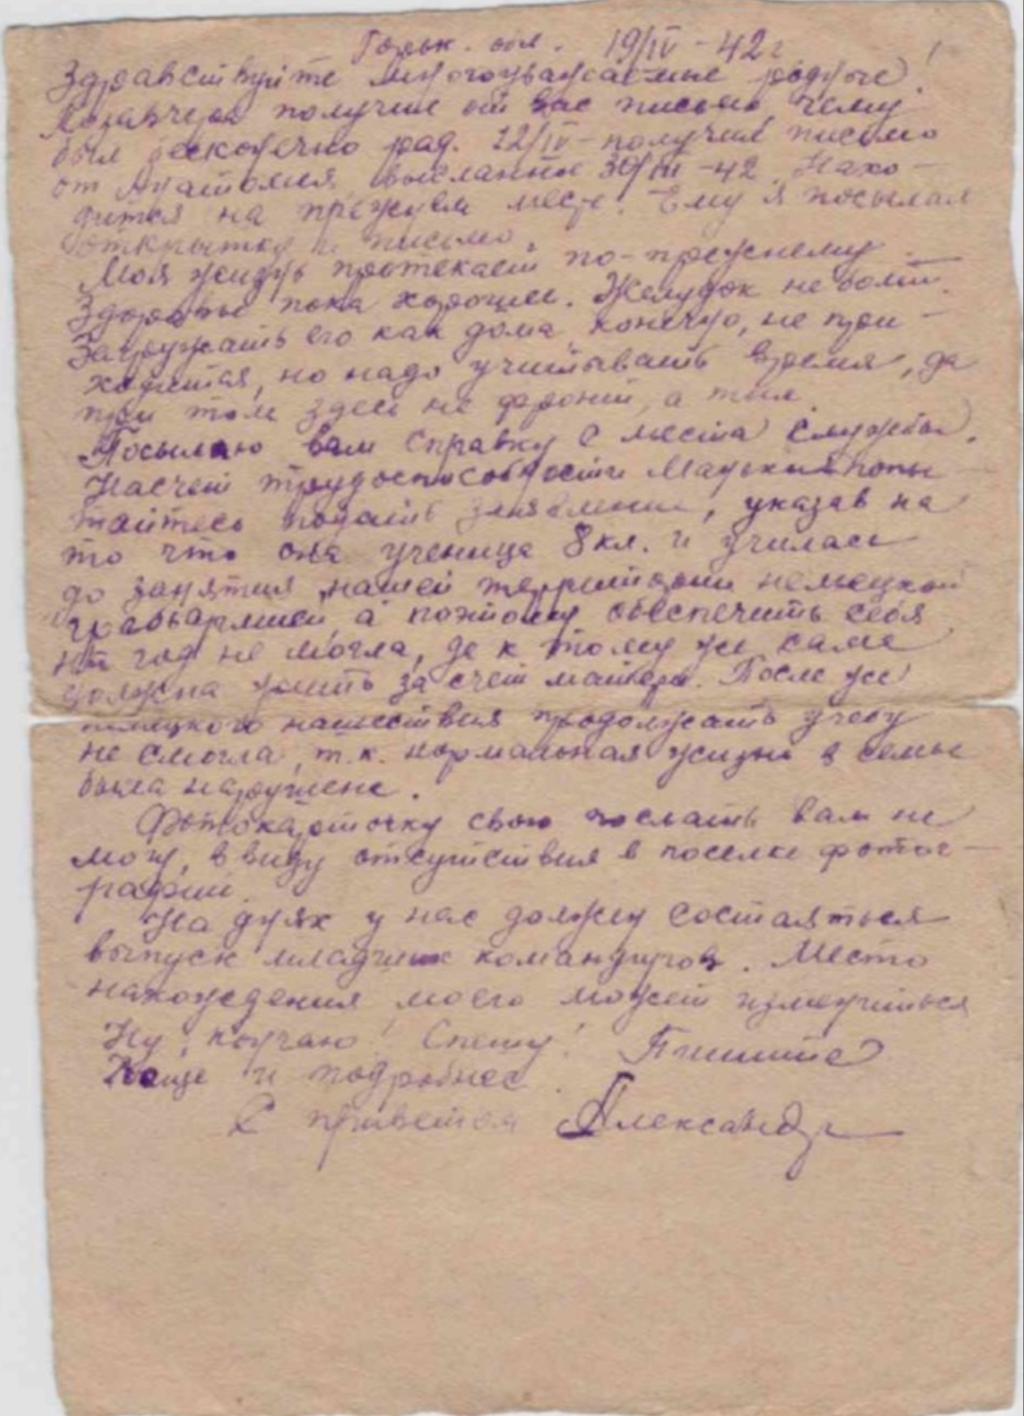 Горьк. обл. 19/IV-42 г
Здравствуйте многоуважаемые родные!
Позавчера получил от вас письмо, чему
был бесконечно рад. 12/IV-получил письмо
от Анатолия, высланное 30/III-42. Нахо-
дится на прежнем месте. Ему я посылал
открытку и письмо.
Моя жизнь протекает по-прежнему
Здоровье пока хорошее. Желудок не болит.
Загружать его как дома, конечно, не при-
ходится, но надо учитывать время, да
при том здесь не фронт, а тыл.
Посылаю вам справку с места службы.
Насчет трудоспособности попы-
тайтесь подать заявление, указав на
то что она ученица 8 кл. и училась
до занятия нашей территории немецкой
а поэтому обеспечить себя
на год не могла, де к тому же сама
должна жить за счет матери. После же
немецкого нашествия продолжать учебу
не смогла, т.к. нормальная жизнь в семье
была нарушена.
Фотокарточку свою послать вам не
могу, ввиду отсутствия в поселке фотог-
рафии.
На днях у нас должен состояться
выпуск младших командиров. Место
нахождения моего может измениться
Ну, кончаю! Спешу! Пишите
Чаще и подробнее.
С приветом Александр